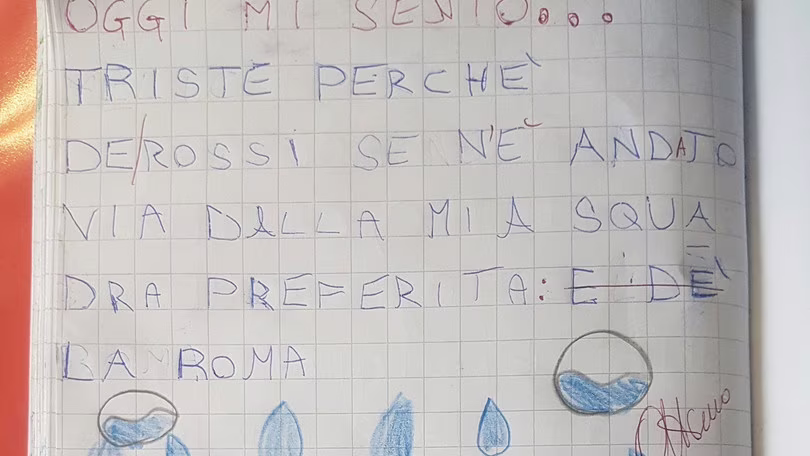 OGGI MI SENTO...
TRISTE PERCHE'
DE/ROSSI SE N'E ANDATO
VIA DALLA MIA SQUA
DRA PREFERITA: E DE'
LA ROMA
Ottimo